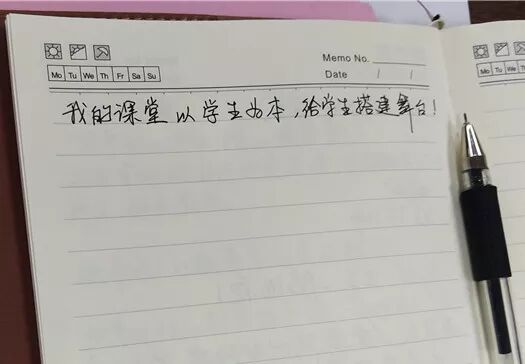 Memo No.
Mo Tu We Th Fr Sa Su
Date / /
我的课堂以学生为本,给学生搭建舞台!